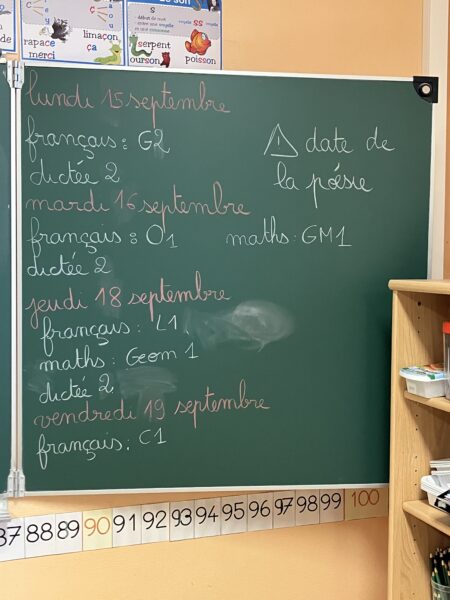 S
ss
rapace
merci
limaçon
ça
serpent
ourson
poisson
lundi 15 septembre
français : G2
dictée 2
⚠ date de
la poésie
mardi 16 septembre
français : O1
maths : GM1
dictée 2
jeudi 18 septembre
français : L1
maths : Geom 1
dictée 2
vendredi 19 septembre
français : C1
87 88 89 90 91 92 93 94 95 96 97 98 99 100